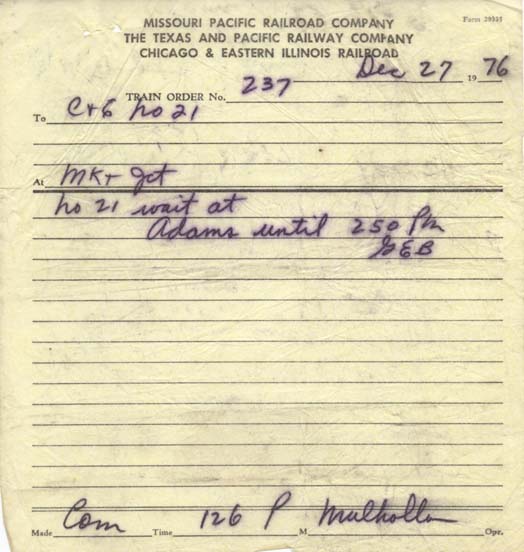 MISSOURI PACIFIC RAILROAD COMPANY
Form 20335
THE TEXAS AND PACIFIC RAILWAY COMPANY
CHICAGO & EASTERN ILLINOIS RAILROAD
Dec 27 1976
TRAIN ORDER No. 237
To C+E no 21
At MK+ Jct
no 21 wait at
Adams until 250 Pm
GEB
Made Com Time 126 P M. Mulhollan Opr.